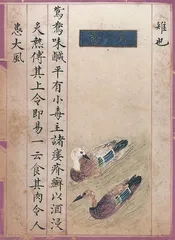 雉也
鴛鴦味鹹平有小毒主諸瘻疥癬以酒浸
炙熱傅其上令即易一云食其肉令人
患大風